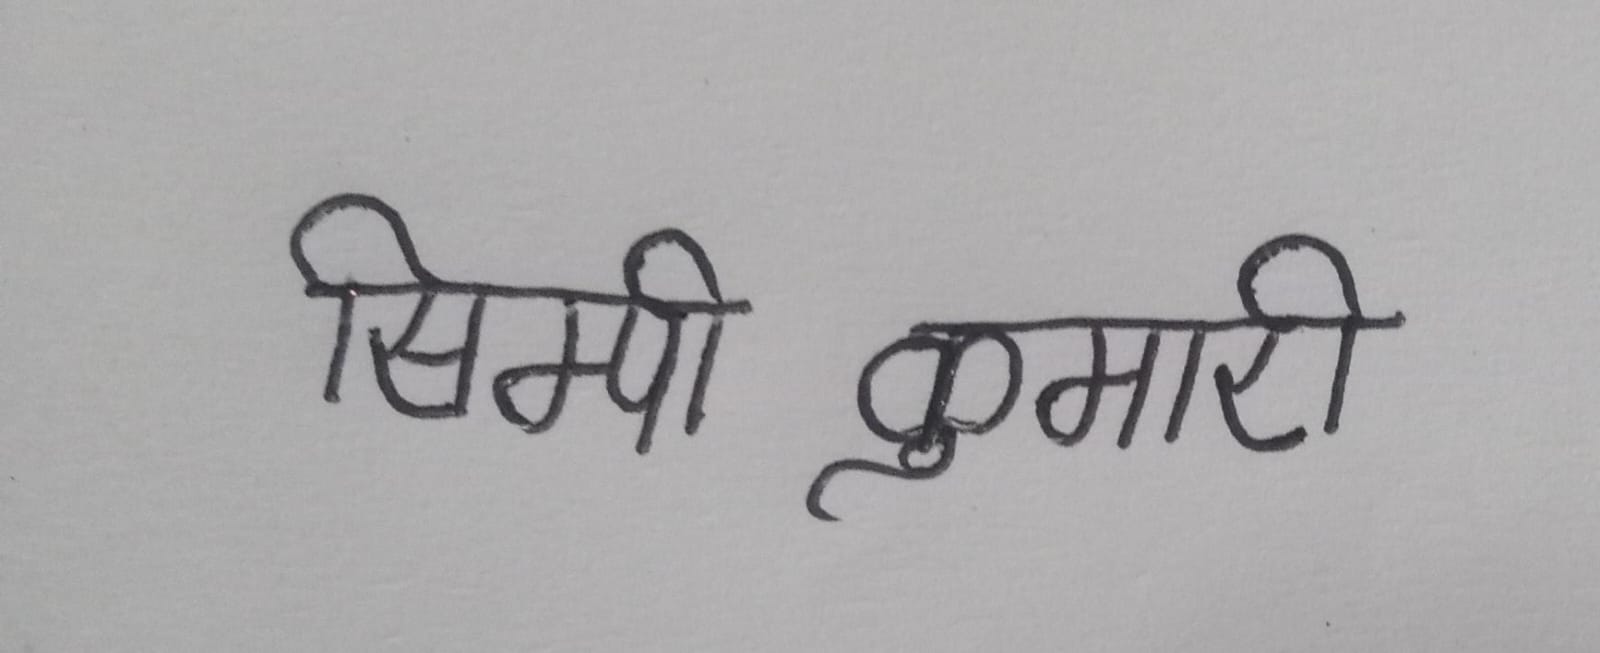 सिम्पी कुमारी